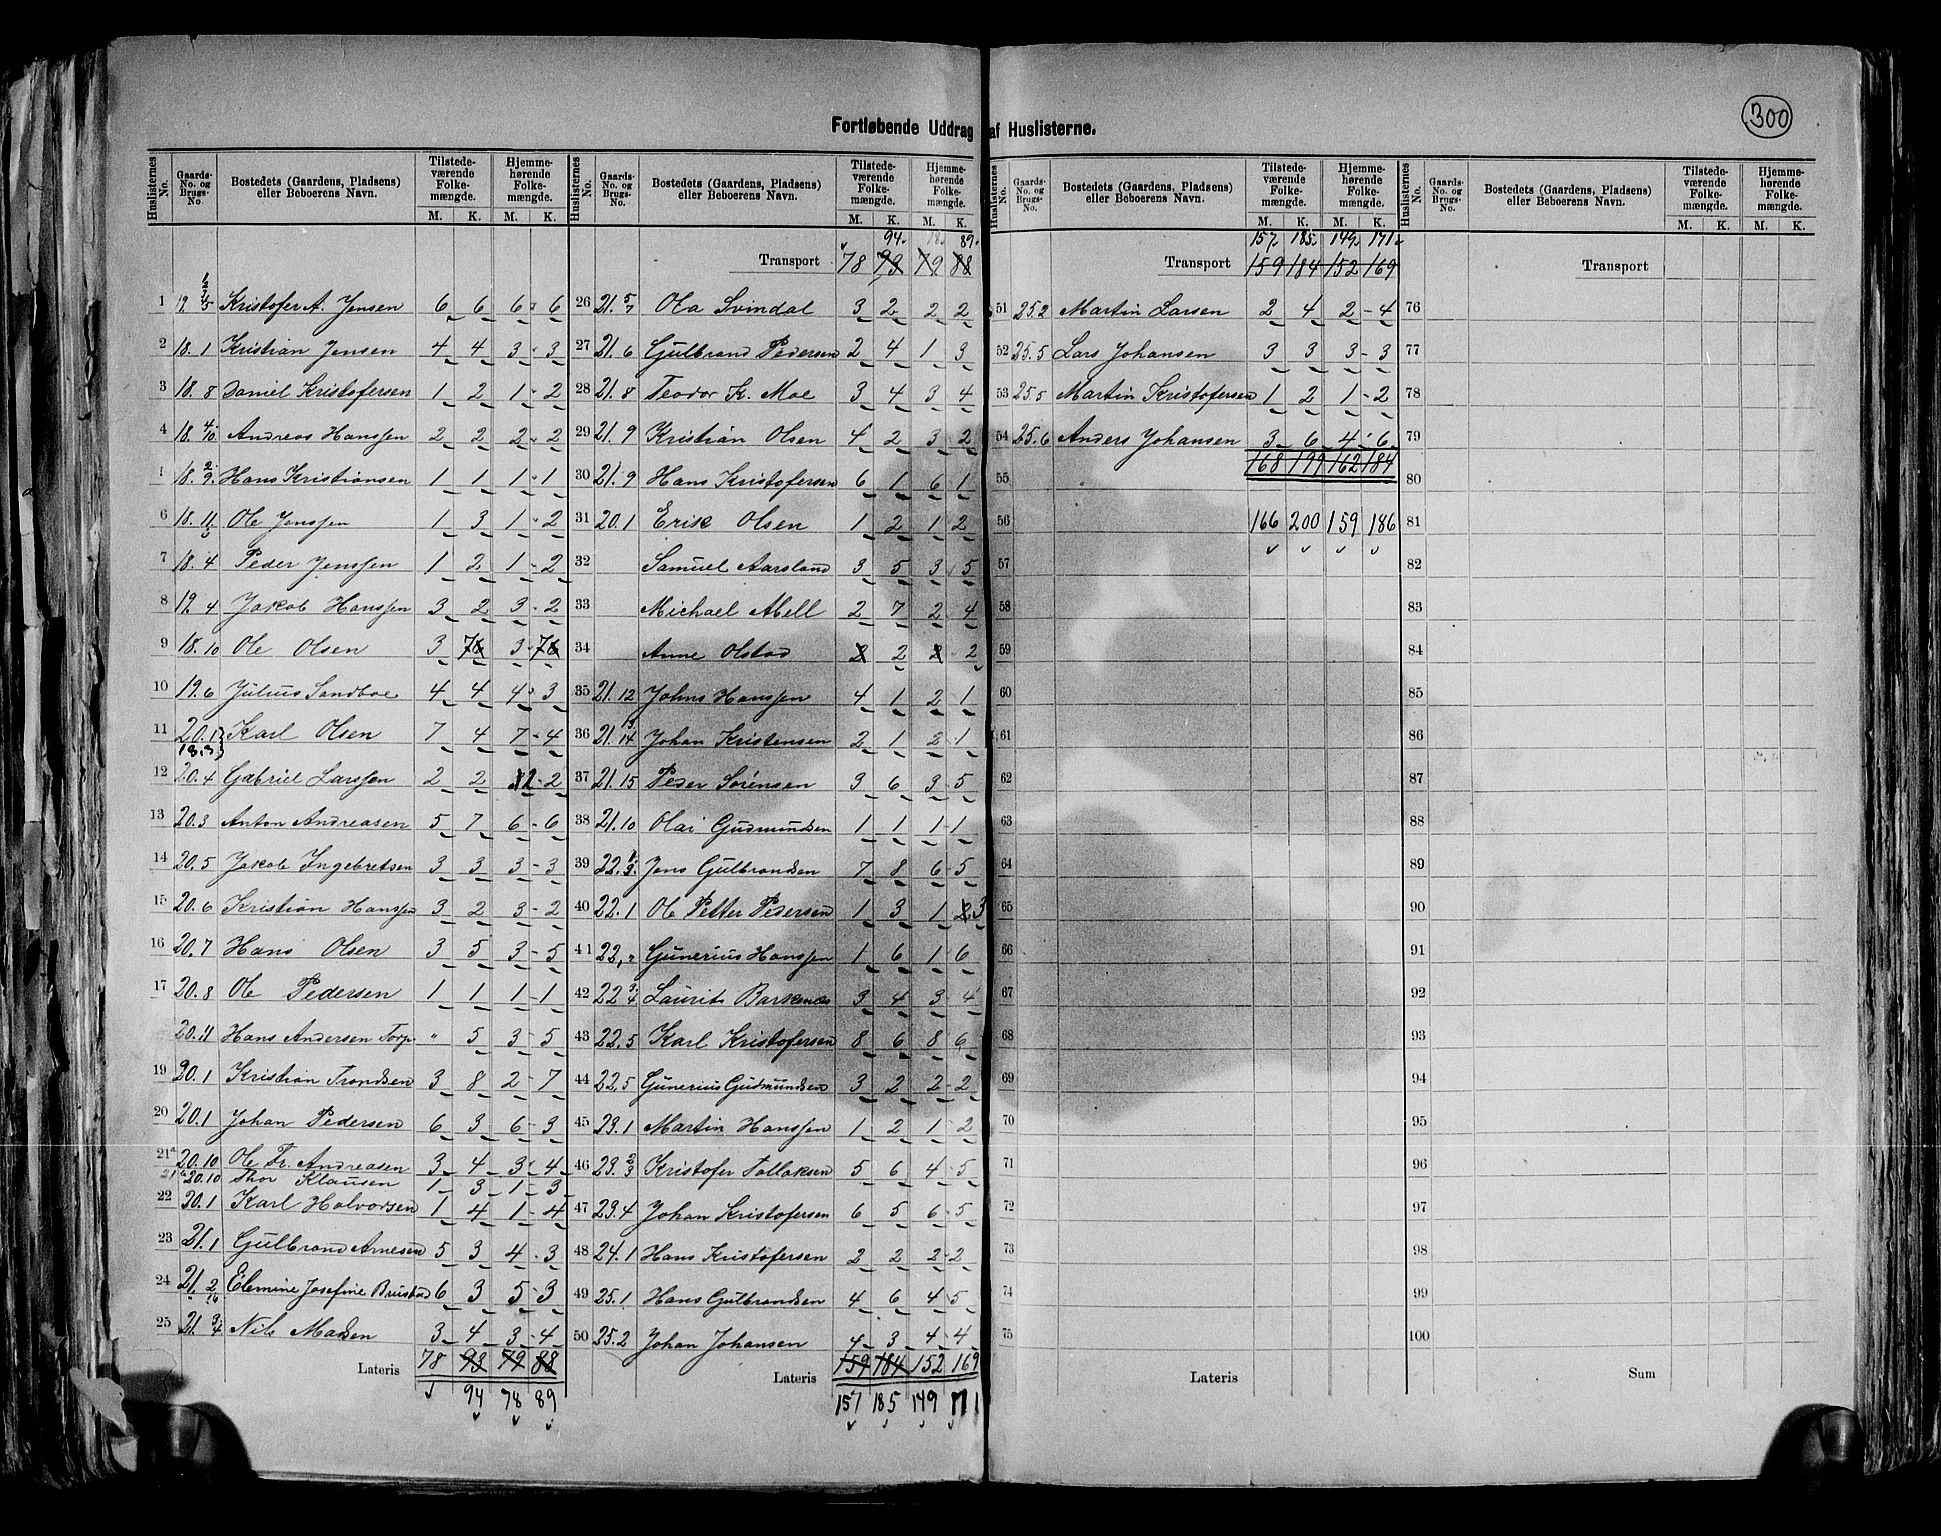 300
Fortløbende Uddrag af Huslisterne.
Huslisternes No. Gaards-No. og Brugs-No. Bostedets (Gaardens, Pladsens) eller Beboerens Navn. Tilstedeværende Folkemængde. M. K. Hjemmehørende Folkemængde. M. K.
1 19. Kristofer A. Jensen 6 6 6 6
2 18. 1 Kristian Jensen 4 4 3 - 3
3 18. 8 Daniel Kristofersen 1 2 1 - 2
4 18. 4/10 Andreas Hanssen 2 2 2 - 2
18. 2/9. Hans Kristiansen 1 1 1 - 1
6 18. 11 Ole Jenssen 1 3 1 - 2
7 18. 4 Peder Jenssen 1 2 1 - 2
8 19. 4 Jakob Hanssen 3 2 3 - 2
9 18. 10 Ole Olsen 3 3
10 19. 6 Julius Sandboe 4 4 4 3
11 20. 1 18. 3 } Karl Olsen 7 4 7 - 4
12 20. 4 Gabriel Larssen 2 2 2 - 2
13 20. 3 Anton Andreasen 5 7 6 - 6
14 20. 5 Jakob Ingebretsen 3 3 3 - 3
15 20. 6 Kristian Hanssen 3 2 3 - 2
16 20. 7 Hans Olsen 3 5 3 - 5
17 20. 8 Ole Pedersen 1 1 1 - 1
20. 11 Hans Andersen Torp " 5 3 - 5
19 20. 1 Kristian Trondsen 3 8 2 - 7
20 20. 1 Johan Pedersen 6 3 6 - 3
21a 20. 10 Ole Fr. Andreasen 3 4 3 4
21b 20. 10 Thor Klausen 1 3 1 - 3
22 20. 1 Karl Halvorsen 1 4 1 - 4
23 21. 1 Gulbrand Arnesen 5 3 4 - 3
24 21. 2/16 Elemine Josefine Bruistad 6 3 5 - 3
25 21. 3/4 Nils Madsen 3 4 3 - 4
Lateris 78 93 79 88
94 78 89
Huslisternes No. Gaards-No. og Brugs-No. Bostedets (Gaardens, Pladsens) eller Beboerens Navn. Tilstedeværende Folkemængde. M. K. Hjemmehørende Folkemængde. M. K.
94. 78. 89.
Transport 78 93 79 88
26 21. 5/7 Ola Svindal 3 2 2 2
27 21. 6 Gulbrand Pedersen 2 4 1 3
28 21. 8 Teodor K. Moe 3 4 3 4
29 21. 9 Kristian Olsen 4 2 3 2
30 21. 9 Hans Kristofersen 6 1 6 1
31 20. 1 Erik Olsen 1 2 1 2
32 Samuel Aarsland 3 5 3 5
33 Michael Abell 2 7 2 4
34 Anne Olstad 2 2 2 2
35 21. 12 Johns Hanssen 4 1 2 1
36 21. 13/14 Johan Kristensen 2 1 2 - 1
37 21. 15 Peder Sörensen 3 6 3 - 5
38 21. 10 Olai Gudmundsen 1 1 1 - 1
39 22. Jens Gulbrandsen 7 8 6 - 5
40 22. 1 Ole Petter Pedersen 1 3 1 2 3
41 22, 2 Gunerius Hanssen 1 6 1 6
42 22 3/4 Laurits Barkenæs 3 4 3 4
43 22. 5 Karl Kristofersen 8 6 8 6
44 22. 5 Gunerius Gudmundsen 3 2 2 - 2
45 23. 1 Martin Hanssen 1 2 1 - 2
46 23. 2/3 Kristofer Tollaksen 5 6 4 - 5
47 23. 4 Johan Kristofersen 6 5 6 - 5
48 24. 1 Hans Kristofersen 2 2 2 - 2
49 25. 1 Hans Gulbrandsen 4 6 4 5
50 25. 2 Johan Johansen 4 3 4 - 4
Lateris 159 184 152 169
157 185 149 171
Huslisternes No. Gaards-No. og Brugs-No. Bostedets (Gaardens, Pladsens) eller Beboerens Navn. Tilstedeværende Folkemængde. M. K. Hjemmehørende Folkemængde. M. K.
157 185 149 171
Transport 159 184 152 169
51 25. 2 Martin Larsen 2 4 2 - 4
52 25. 5 Lars Johansen 3 3 3 - 3
53 25. 5 Martin Kristofersen 1 2 1 - 2
54 25. 6 Anders Johansen 3 6 4 - 6
168 199 162 184
55
56 166 200 159 186
57
58
59
60
61
62
63
64
65
66
67
68
69
70
71
72
73
74
75
Lateris
Huslisternes No. Gaards-No. og Brugs-No. Bostedets (Gaardens, Pladsens) eller Beboerens Navn. Tilstedeværende Folkemængde. M. K. Hjemmehørende Folkemængde. M. K.
Transport
76
77
78
79
80
81
82
83
84
85
86
87
88
89
90
91
92
93
94
95
96
97
98
99
100
Sum